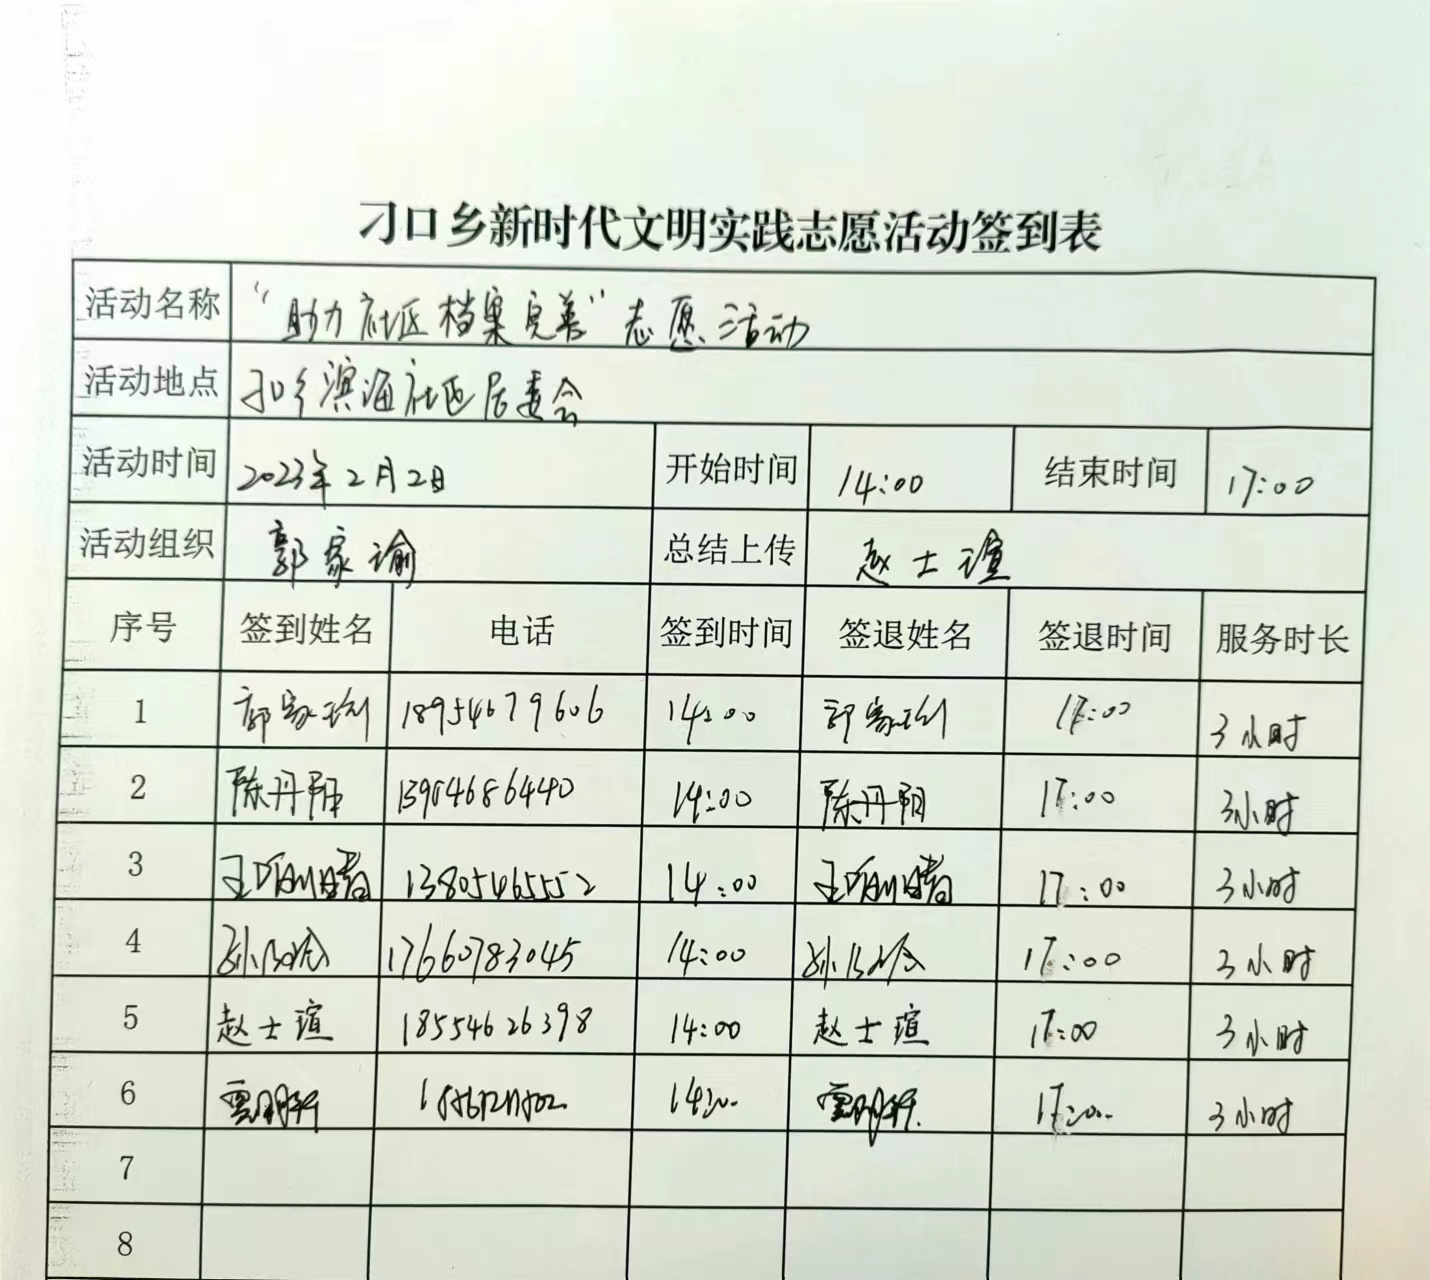 刁口乡新时代文明实践志愿活动签到表
活动名称 “助力社区档案完善”志愿活动
活动地点 刁口乡滨海社区居委会
活动时间 2023年2月2日 开始时间 14:00 结束时间 17:00
活动组织 郭家瑜 总结上传 赵士瑄
序号 签到姓名 电话 签到时间 签退姓名 签退时间 服务时长
1 郭家瑜 18954679606 14:00 郭家瑜 17:00 3小时
2 陈丹阳 13904686440 14:00 陈丹阳 17:00 3小时
3 13805465552 14:00 17:00 3小时
4 17660783045 14:00 17:00 3小时
5 赵士瑄 18554626398 14:00 赵士瑄 17:00 3小时
6 14:00 17:00 3小时
7
8